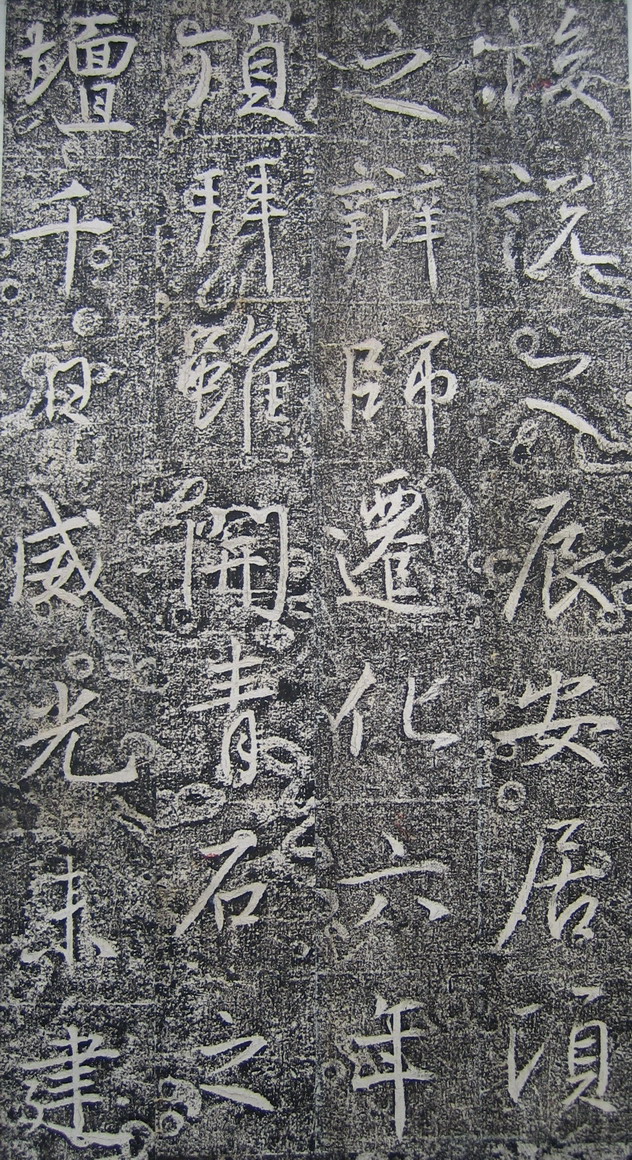 後說之辰安居頃
之辯師遷化六年
頂拜雖開青石之
壇千日威光未建